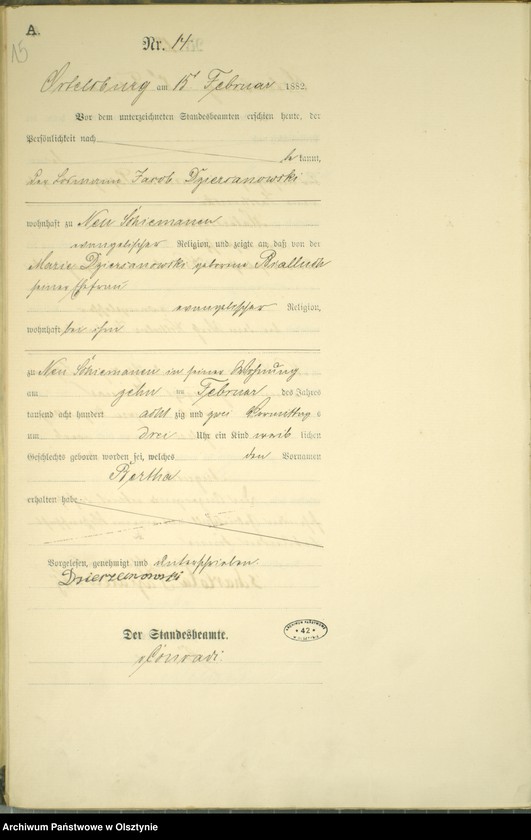 A.
15
Nr. 14
Ortelsburg am 15 Februar 1882.
Vor dem unterzeichneten Standesbeamten erschien heute, der
Persönlichkeit nach
be kannt,
der Losmann Jacob Dziersanowski
wohnhaft zu Neu Schiemanen
evangelischer Religion, und zeigte an, daß von der
Marie Dziersanowski geborene
seiner Ehefrau
evangelischer Religion,
wohnhaft bei ihm
zu Neu Schiemanen in seiner Wohnung
am zehn ten Februar des Jahres
tausend acht hundert acht zig und zwei Vormittag s
um drei Uhr ein Kind weib lichen
Geschlechts geboren worden sei, welches den Vornamen
Bertha
erhalten habe
Vorgelesen, genehmigt und unterschrieben
Dzierzenowski
Der Standesbeamte.
Conradi
ARCHIWUM PAŃSTWOWE
* 42 *
W OLSZTYNIE
Archiwum Państwowe w Olsztynie